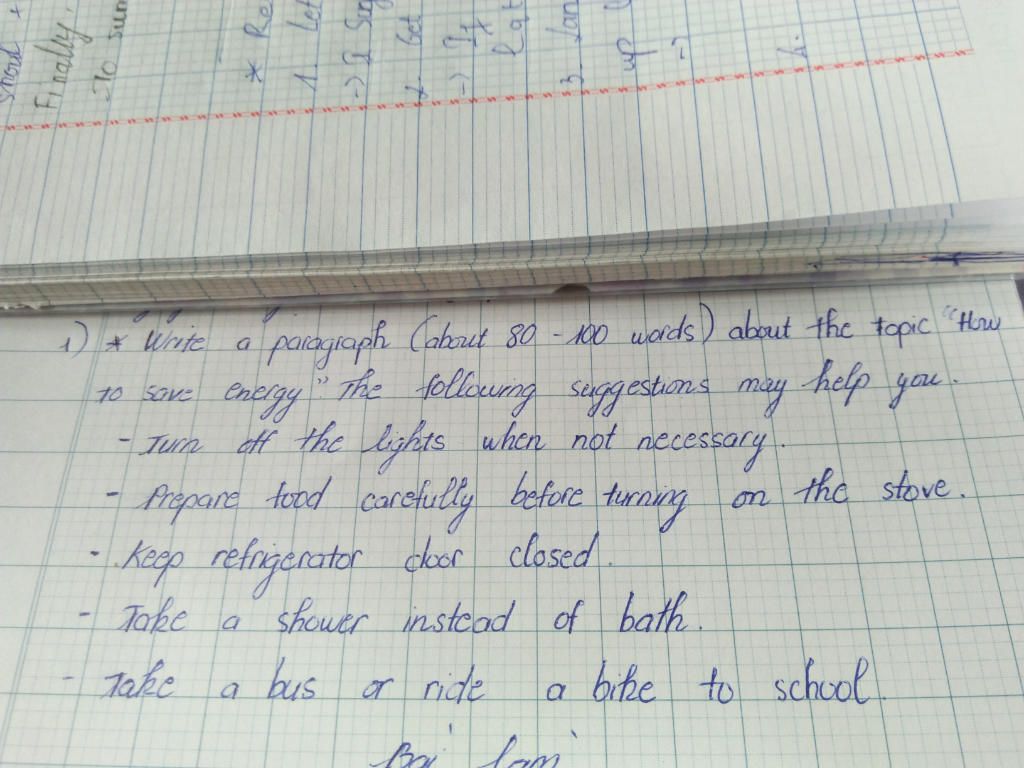 Finally
* Re
1. Let
2. Get
1) * Write a paragraph (about 80 - 100 words) about the topic "How
to save energy" The following suggestions may help you.
- Turn off the lights when not necessary.
- Prepare food carefully before turning on the stove.
- Keep refrigerator door closed.
- Take a shower instead of bath.
- Take a bus or ride a bike to school.
Bài làm